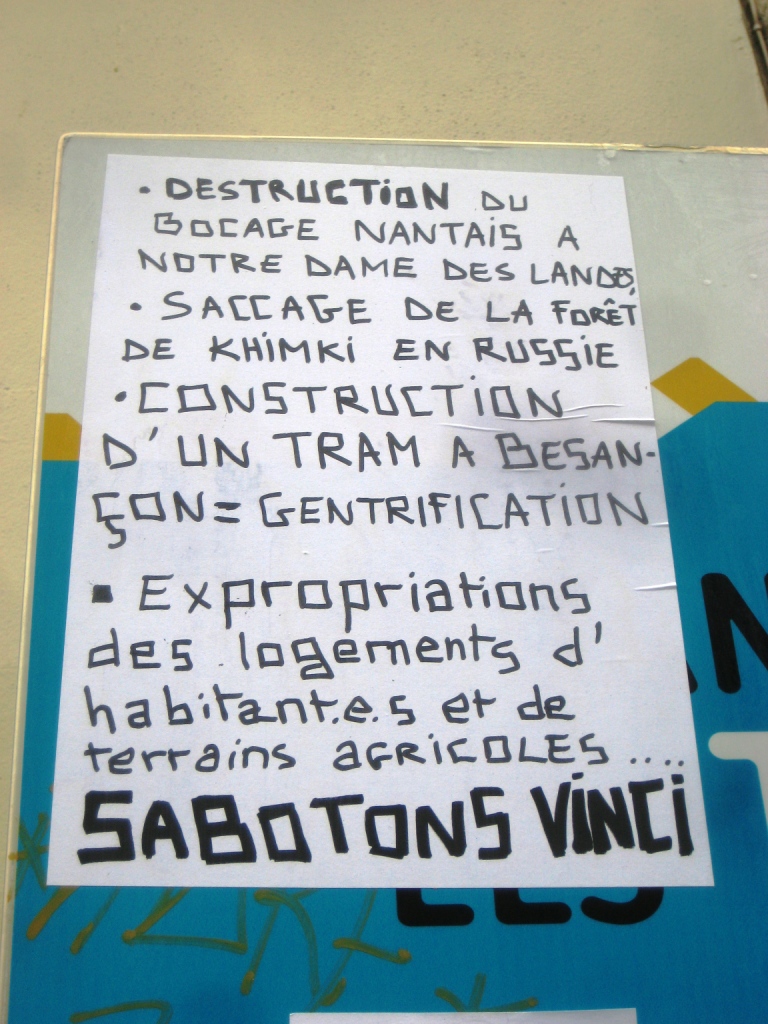 • DESTRUCTION DU
BOCAGE NANTAIS A
NOTRE DAME DES LANDES,
• SACCAGE DE LA FORÊT
DE KHIMKI EN RUSSIE
• CONSTRUCTION
D'UN TRAM A BESAN-
ÇON = GENTRIFICATION
▪ Expropriations
des logements d'
habitant.e.s et de
terrains AGRICOLES ....
SABOTONS VINCI
LES